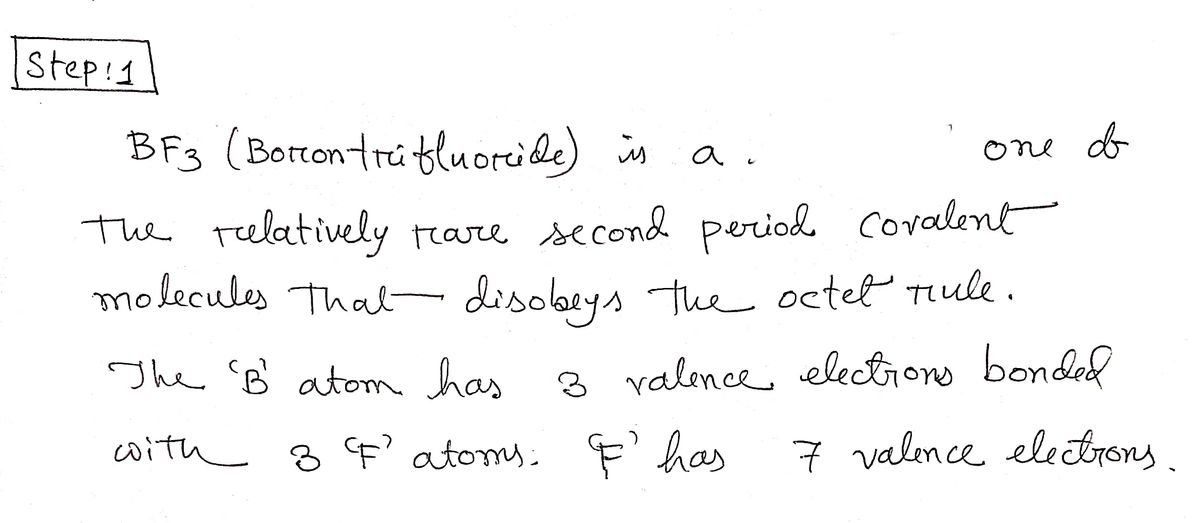 Step:1
BF3 (Borontrifluoride) is a . one of
The relatively rare second period covalent
molecules That disobeys the octet rule.
The 'B' atom has 3 valence electrons bonded
with 3 'F' atoms. 'F' has 7 valence electrons.